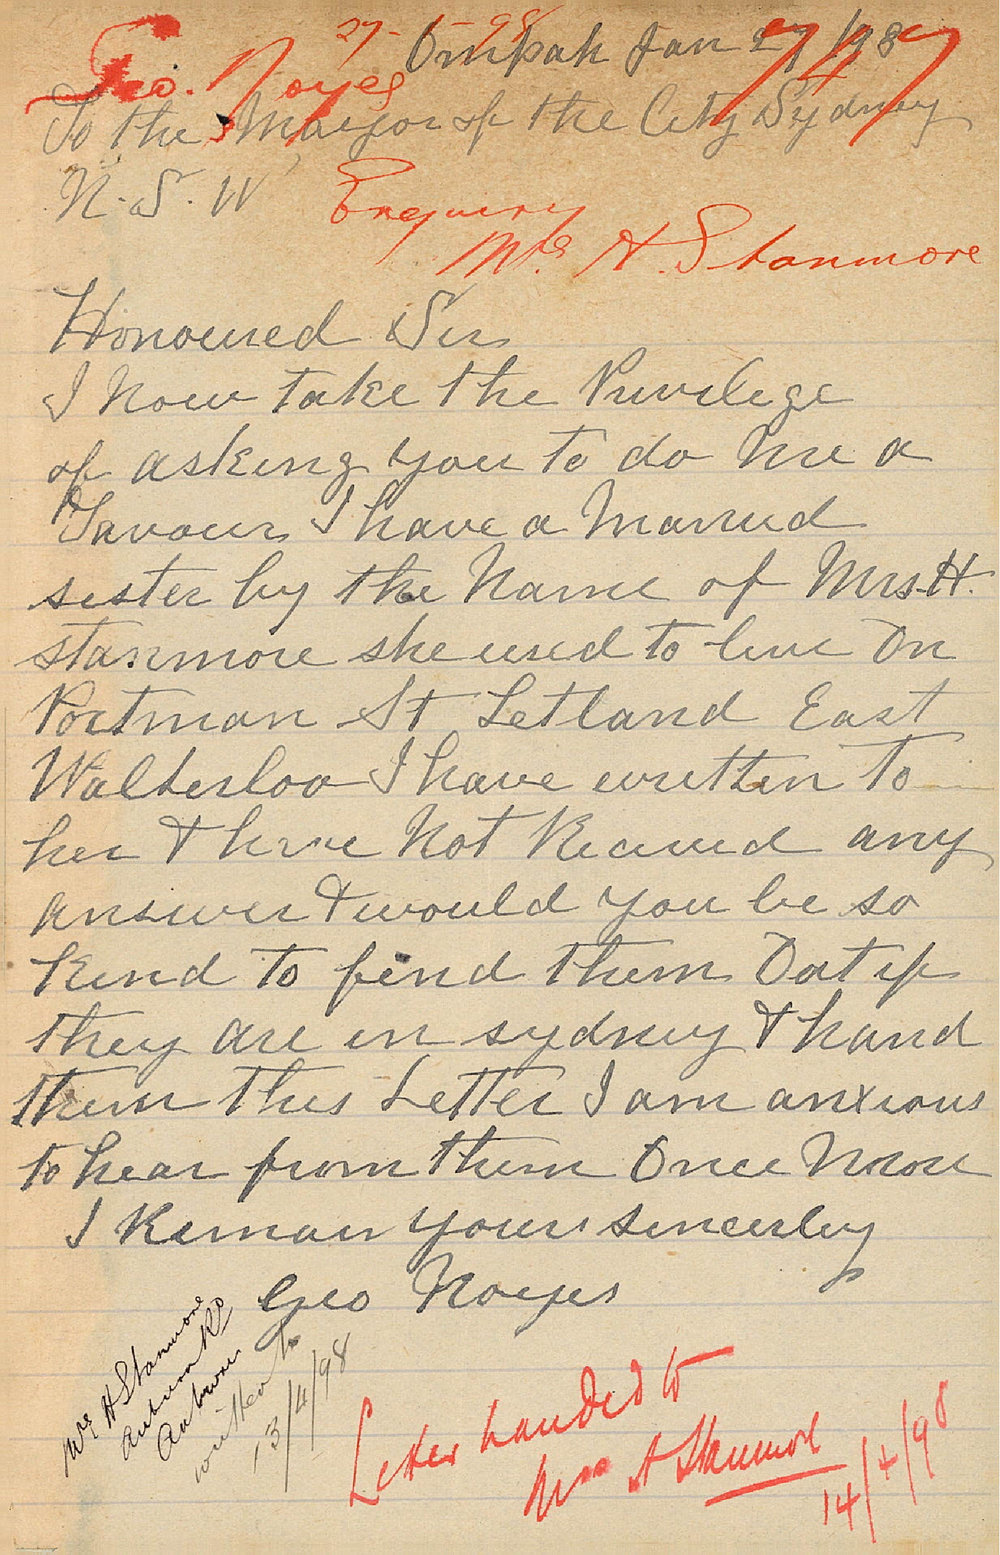 27-1-98
Ompah Jan 27/98
Geo. Noyes
747
To the Mayor of the City Sydney
N.S.W
Enquiry
Mrs H. Stanmore
Honoured Sir
I Now take the Privilege
of asking you to do Me a
Favour I have a Married
sister by the Name of Mrs H.
Stanmore she used to live On
Portman St Zetland East
Walterloo I have written to
her & have Not Received any
answer & would you be so
Kind to find them Out if
they are in Sydney & hand
them this Letter I am anxious
to hear from them Once More
I Remain Yours Sincerley
Geo Noyes
Mrs H Stanmore
Auburn Rd
Auburn
written to
13/4/98
Letter handed to
Mrs H Stanmore
14/4/98